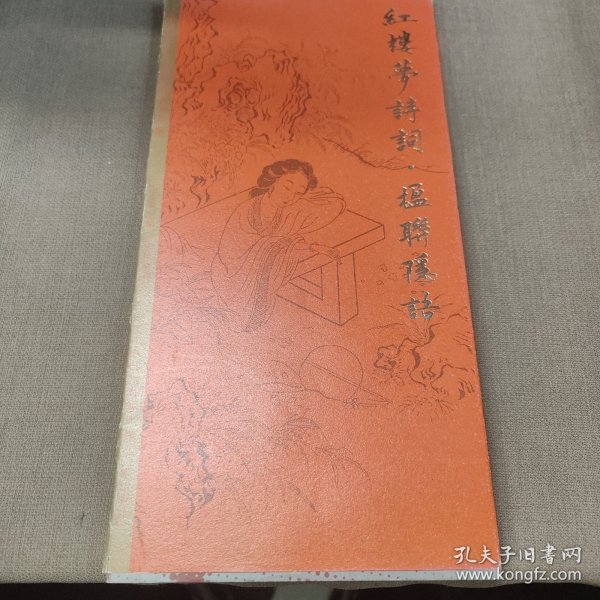 紅樓夢詩詞·楹聯隱語
孔夫子旧书网
www.kongfz.com